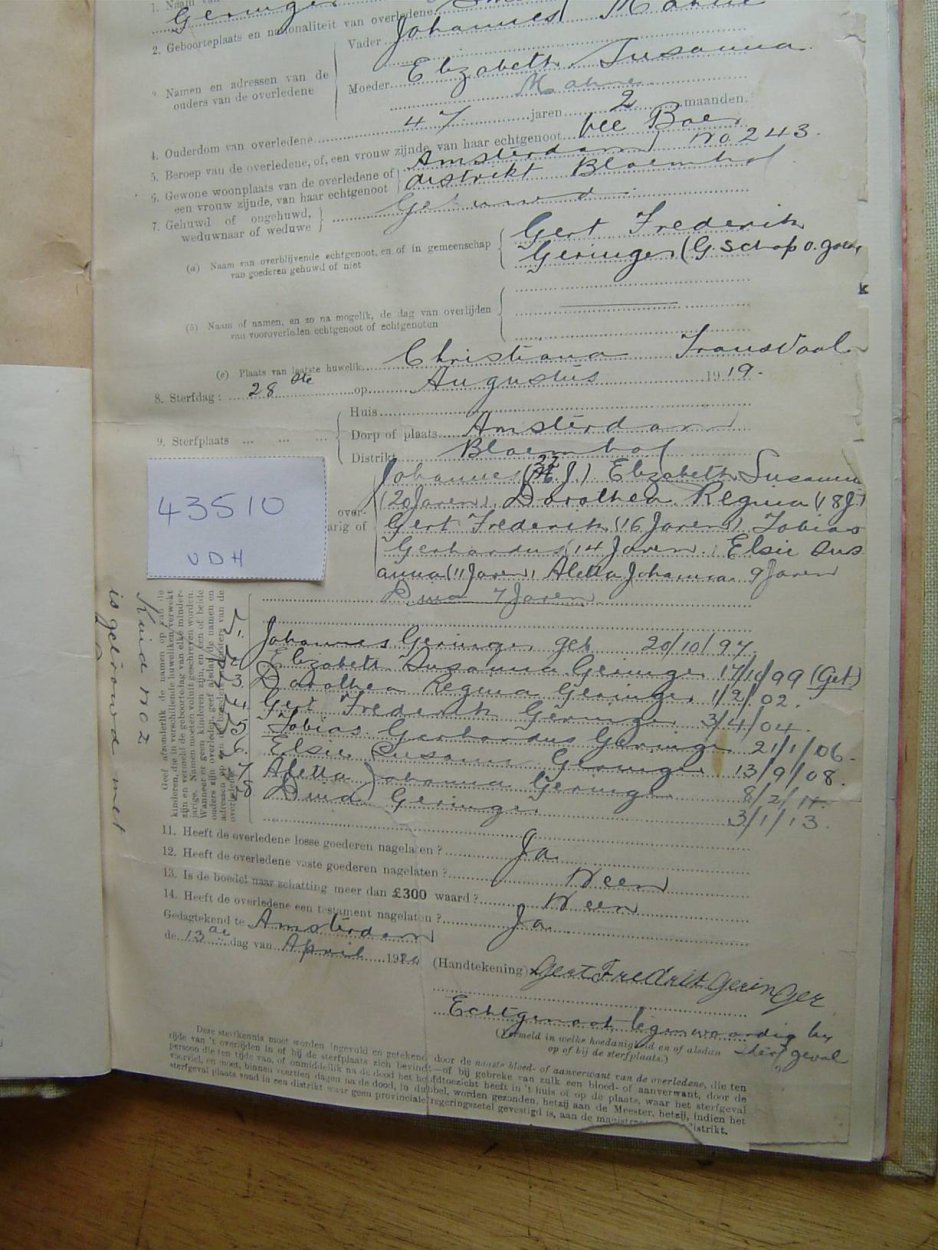 1. Naam van
Geringer
2. Geboorteplaats en nationaliteit van overledene
3. Namen en adressen van de ouders van de overledene
Vader Johannes Mahne
Moeder Elizabeth Susanna
Mahne
4. Ouderdom van overledene 47 jaren 2 maanden.
5. Beroep van de overledene, of, een vrouw zijnde, van haar echtgenoot Vee Boer
6. Gewone woonplaats van de overledene of een vrouw zijnde, van haar echtgenoot Amsterdam No 243.
distrikt Bloemhof
7. Gehuwd of ongehuwd, weduwnaar of weduwe Gehuwd
(a) Naam van overblijvende echtgenoot, en of in gemeenschap van goederen gehuwd of niet
Gert Frederik
Geringer (G. Schap v. goed
(b) Naam of namen, en zo na mogelik, de dag van overlijden van vooroverleden echtgenoot of echtgenoten
(c) Plaats van laatste huwelik Christiana Transvaal
8. Sterfdag: 28ste op Augustus 1919.
9. Sterfplaats ... ... ...
Huis
Dorp of plaats Amsterdam
Distrikt Bloemhof
43510
VDH
over
arig of
Johannes (22 J.) Elizabeth Susanna
(20 Jaren), Dorothea Regina (18 J)
Gert Frederik (16 Jaren), Tobias
Gerhardus (14 Jaren) Elsie Sus
anna (11 Jaren) Aletta Johanna 9 Jaren
7 Jaren
1. Johannes Geringer geb 20/10/97.
2. Elizabeth Susanna Geringer 17/10/99 (Get)
3. Dorothea Regina Geringer 1/2/02.
4. Gert Frederik Geringer 3/4/04.
5. Tobias Gerhardus Geringer 21/1/06.
6. Elsie Susanna Geringer 13/9/08.
7. Aletta Johanna Geringer 8/2/11.
8. Geringer 3/1/13.
Kind No 2
is getrouwd met
11. Heeft de overledene losse goederen nagelaten? Ja
12. Heeft de overledene vaste goederen nagelaten? Neen
13. Is de boedel naar schatting meer dan £300 waard? Neen
14. Heeft de overledene een testament nagelaten? Ja
Gedagtekend te Amsterdam
de 13de dag van April 1920
(Handtekening) Gert Fredrik Geringer
Echtgenoot tegenwoordig by
(Vermeld in welke hoedanigheid en of aldaar
op of bij de sterfplaats.)
sterfgeval
Deze sterfkennis moet worden ingevuld en getekend door de naaste bloed- of aanverwant van de overledene, die ten
tijde van 't overlijden in of bij de sterfplaats zich bevindt—of bij gebreke van zulk een bloed- of aanverwant, door de
persoon die ten tijde van, of onmiddellik na de dood het hoofdtoezicht heeft in 't huis of op de plaats, waar het sterfgeval
voorviel, en moet, binnen veertien dagen na de dood, in dubbel, worden gezonden, hetzij aan de Meester, hetzij, indien het
sterfgeval plaats vond in een distrikt waar geen provinciale regeringszetel gevestigd is, aan de magistraat distrikt.